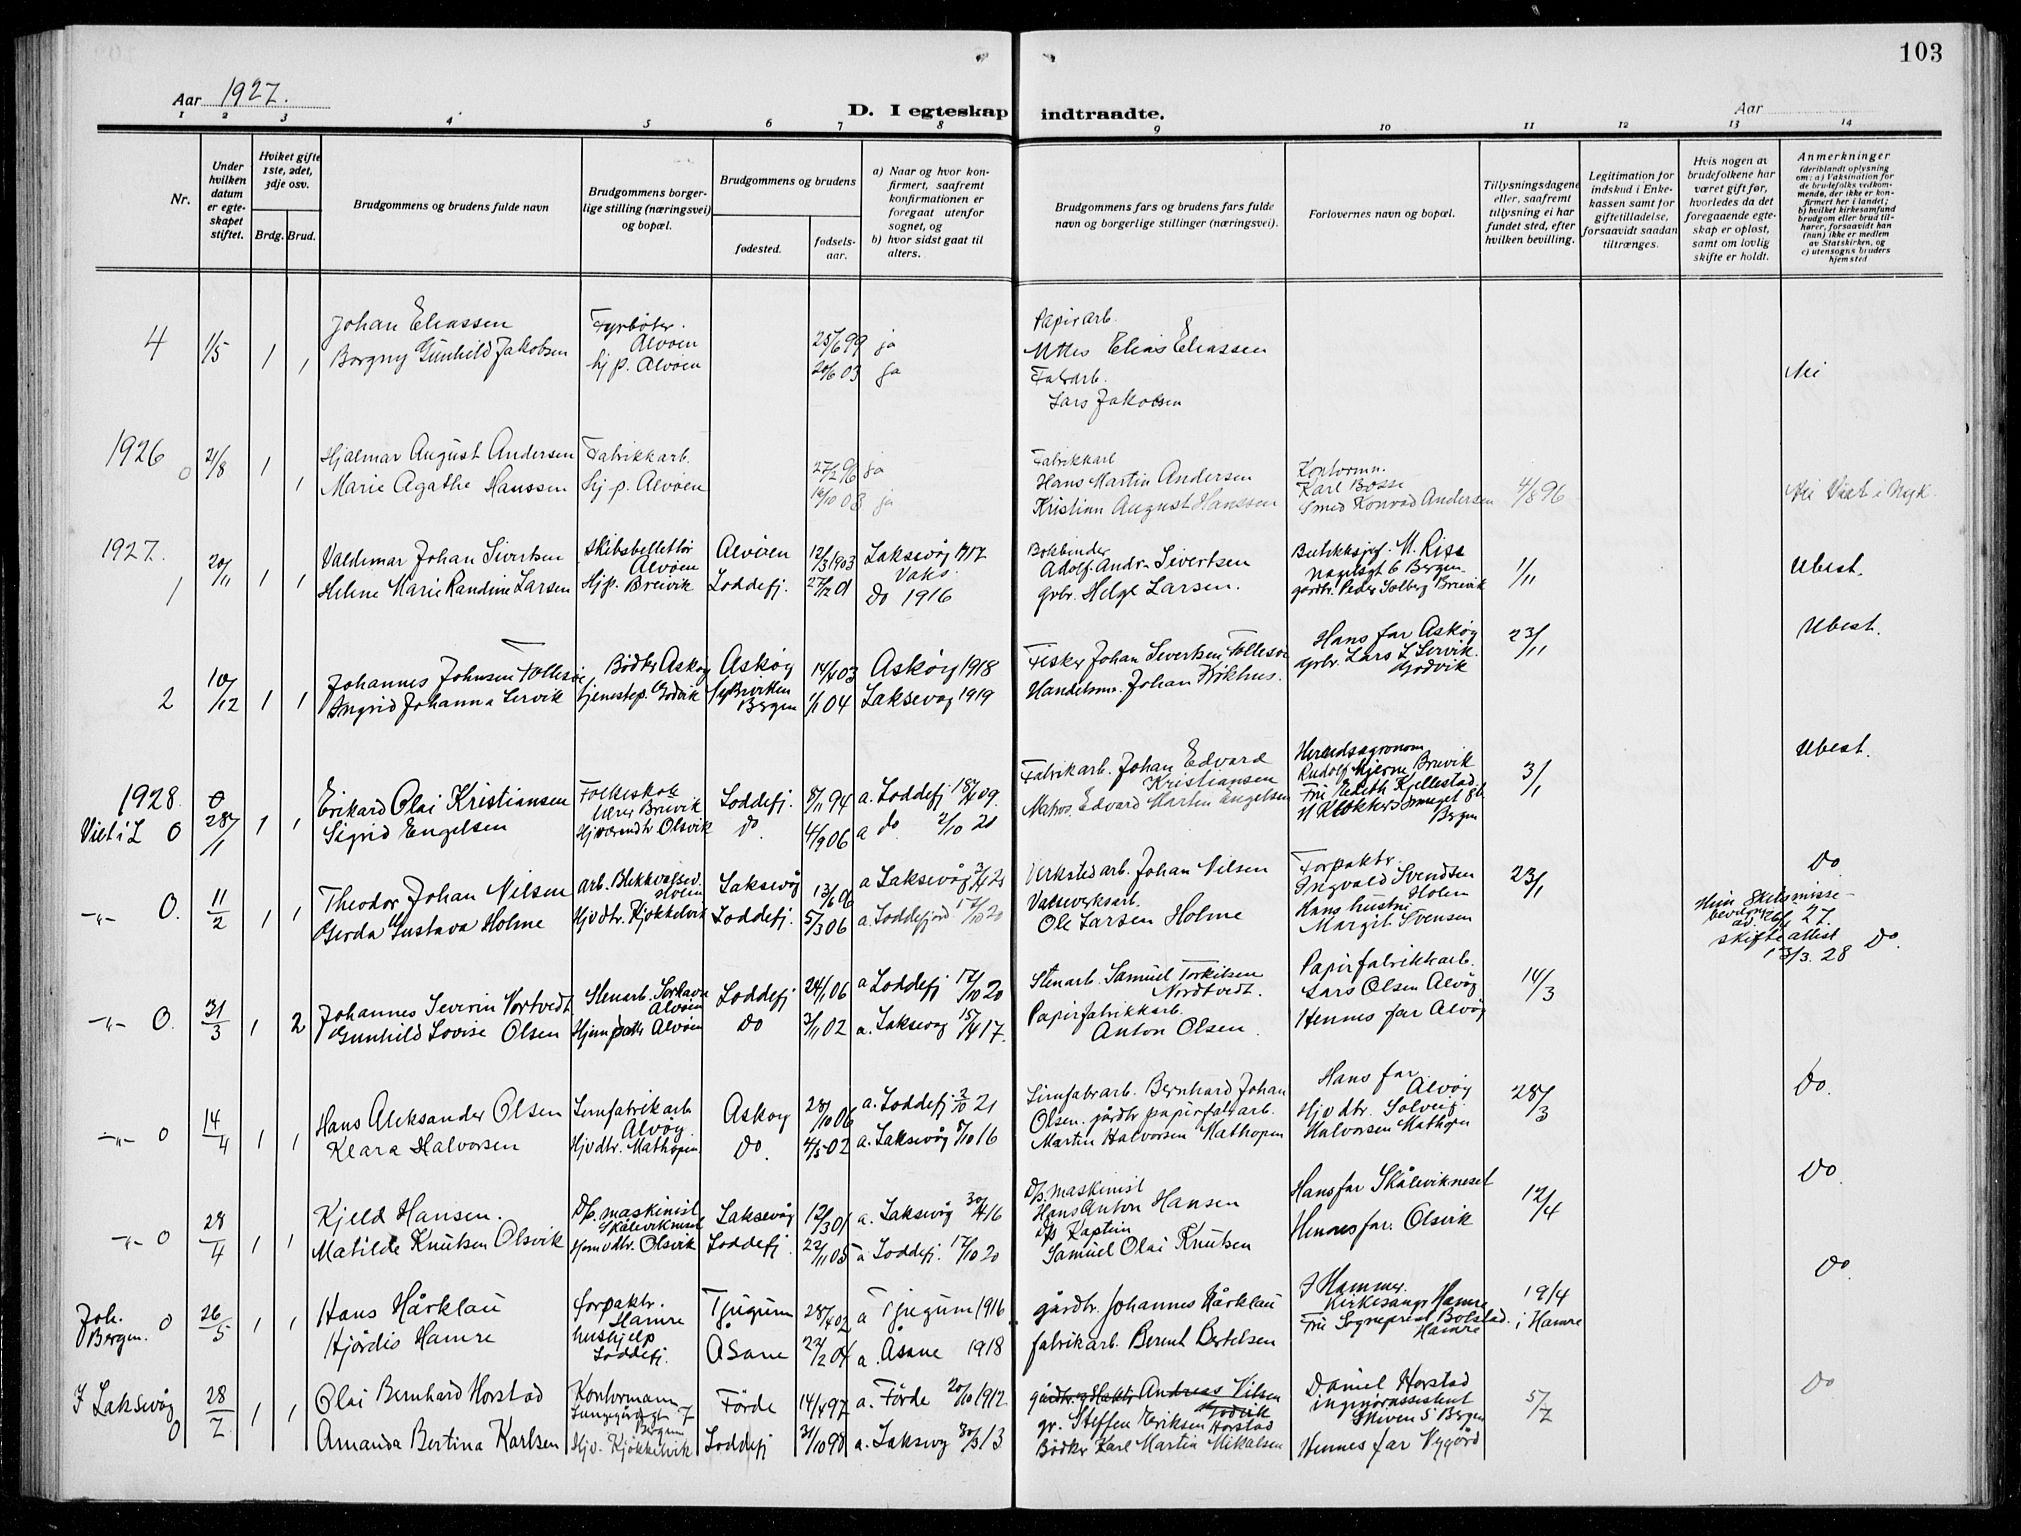 103
Aar 1927.
Aar
D. I egteskap indtraadte.
1 2 3 4 5 6 7 8 9 10 11 12 13 14
Nr.
Under hvilken datum er egteskapet stiftet.
Hviket gifte 1ste, 2det, 3dje osv.
Brdg. Brud.
Brudgommens og brudens fulde navn
Brudgommens borgerlige stilling (næringsvei) og bopæl.
Brudgommens og brudens
fødested.
fødselsaar.
a) Naar og hvor konfirmert, saafremt konfirmationen er foregaat utenfor sognet, og
b) hvor sidst gaat til alters.
Brudgommens fars og brudens fars fulde navn og borgerlige stillinger (næringsvei).
Forlovernes navn og bopæl.
Tillysningsdagene eller, saafremt tillysning ei har fundet sted, efter hvilken bevilling.
Legitimation for indskud i Enkekassen samt for giftetilladelse, forsaavidt saadan tiltrænges.
Hvis nogen av brudefolkene har været gift før, hvorledes da det foregaaende egteskap er opløst, samt om lovlig skifte er holdt.
Anmerkninger (deriblandt oplysning om: a) Vaksination for de brudefolks vedkommende, der ikke er konfirmert her i landet; b) hvilket kirkesamfund brudgom eller brud tilhører, forsaavidt han (hun) ikke er medlem av Statskirken, og c) utensogns bruders hjemsted
4 1/5 1 1
Johan Eliassen
Borgny Gunhild Jakobsen
Fyrbøter.
Alvøen
Hj p. Alvøen
25/6 99 ja
20/6 03 ja
Papirarb.
Elias Eliassen
Fabrarb.
Lars Jakobsen
Nei
1926
0 21/8 1 1
Hjalmar August Andersen
Marie Agathe Hanssen
Fabrikkarb.
Hj p. Alvøen
27/2 96 ja
16/10 03 ja
Fabrikkarb
Hans Martin Andersen
Kristian August Hanssen
Kontorm.
Karl Bosse
Smed Konrad Andersen
4/8 96
Nei Viet i Nyk.
1927.
1 20/11 1 1
Valdemar Johan Sivertsen
Helene Marie Randine Larsen
Alvøen
Hjp. Breivik
Alvøen
Loddefj.
12/3 1903
27/12 01
Laksevåg 1917
Vaks.
Do 1916
Bokbinder
Adolf Andr. Sivertsen
Grbr. Helge Larsen.
M. Riss
Nagelsgt 6 Bergen
gårdbr. Peder Solberg Breivik
1/11
Ubest.
2 10/12 1 1
Johannes Johnsen Follesøe
Ingrid Johanna Lervik
Bødker Askøy
tjenestep. Godvik
Askøy
Bergen
14/4 03
1/1 04
Askøy 1918
Laksevåg 1919
Fisker Johan Sivertsen Follesøe
Handelsm. Johan
Hans far Askøy
Grbr. Lars L Lervik
Godvik
23/11
Ubest.
1928.
Viet i L 0 28/1 1 1
Erikard Olai Kristiansen
Sigrid Engelsen
Folkeskole
lærer Breivik
Olsvik
Loddefj.
Do.
8/11 94
4/9 06
a. Loddefj 18/4 09.
a do 2/10 21
Fabrikarb. Johan Edvard
Kristiansen
Matros Edvard Martin Engelsen
Herredsagronom
Rudolf Hjerne Breivik
Fru Edith Kjellestad
Bergen
3/1
Ubest.
-"- 0. 11/2 1 1
Theodor Johan Nilsen
Gerda Gustava Holme
arb. Blikkvalsev.
Hjvdtr. Kjøkkelvik
Laksevåg
Loddefj.
13/6 06
5/3 06
a Laksevåg 3/4 21
a. Loddefjord 17/10 20
Verkstedarb. Johan Nilsen
Valseverksarb.
Ole Larsen Holme
Forpaktr.
Ingvald Svendsen
Holen
Hans hustru
Margit Svensen
23/1
Do.
-"- 0. 31/3 1 2
Johannes Severin Nortvedt
Gunhild Lovise Olsen
Stenarb.
Alvøen
Alvøen
Loddefj
Do
24/1 06
3/11 02
a Loddefj 17/10 20
a. Laksevåg 15/4 17.
Stenarb. Samuel Torkilsen
Nordtvedt.
Papirfabrikkarb.
Anton Olsen.
Papirfabrikkarb.
Lars Olsen Alvøy
Hennes far Alvøy
14/3
Hun Skilsmisse-
bevilgn.
27.
skifte attest
13/3. 28
Do.
-"- 0 14/4 1 1
Hans Aleksander Olsen
Klara Halvorsen
Limfabrikarb
Alvøy
Hjvdtr. Mathopen
Askøy
Do.
28/10 06
4/5 02
a. Loddefj 2/10 21
a. Laksevåg 8/10 16
Limfabrarb. Bernhard Johan
Olsen. gårdbr papirfabarb.
Martin Halvorsen Mathopen
Hans far
Alvøy
Hjvdtr. Solveig
Halvorsen Mathopen
28/3
Do.
-"- 0 28/4 1 1
Kjeld Hansen.
Matilde Knutsen Olsvik
D/s. maskinist
Skåleviknæset
Hjemvdtr. Olsvik
Laksevåg
Loddefj.
12/3 01
22/11 05
a. Laksevåg 30/4 16
a Loddefj. 17/10 20
D/s. maskinist
Hans Anton Hansen
D/s Kaptein
Samuel Olai Knutsen
Hans far Skåleviknæset
Hennes far. Olsvik
12/4
Do
Joh. Bergen. 0 26/5 1 1
Hans Hårklau
Hjørdis Hamre
forpaktr.
Hamre
hushjelp
Loddefj.
Tjugum
Åsane
28/4 02
22/2 04
a Tjugum 1916
a. Åsane 1918
gårdbr. Johannes Hårklau
fabrikarb. Bernt Bertelsen
J Hammer.
Kirkesanger Hamre
Fru Sogneprest Bolstad.
Hamre
19/4
i Hamre
Do
I Laksevåg 0 28/7 1 1
Olai Bernhard Horstad
Amanda Bertina Karlsen
Kontormann
Lungegårdsgt 7
Bergen
Hjv. Kjøkkelvik
Førde
Loddefj
14/4 97
21/10 98
a. Førde 20/10 1912
a. Laksevåg 30/3 13
Andreas Nilsen
Godvik
gr. Steffen Eriksen Horstad
Bødker Karl Martin Mikalsen
Daniel Horstad
ingeniørassistent
Skiven 5 Bergen
Hennes far Nygård
5/7
Do